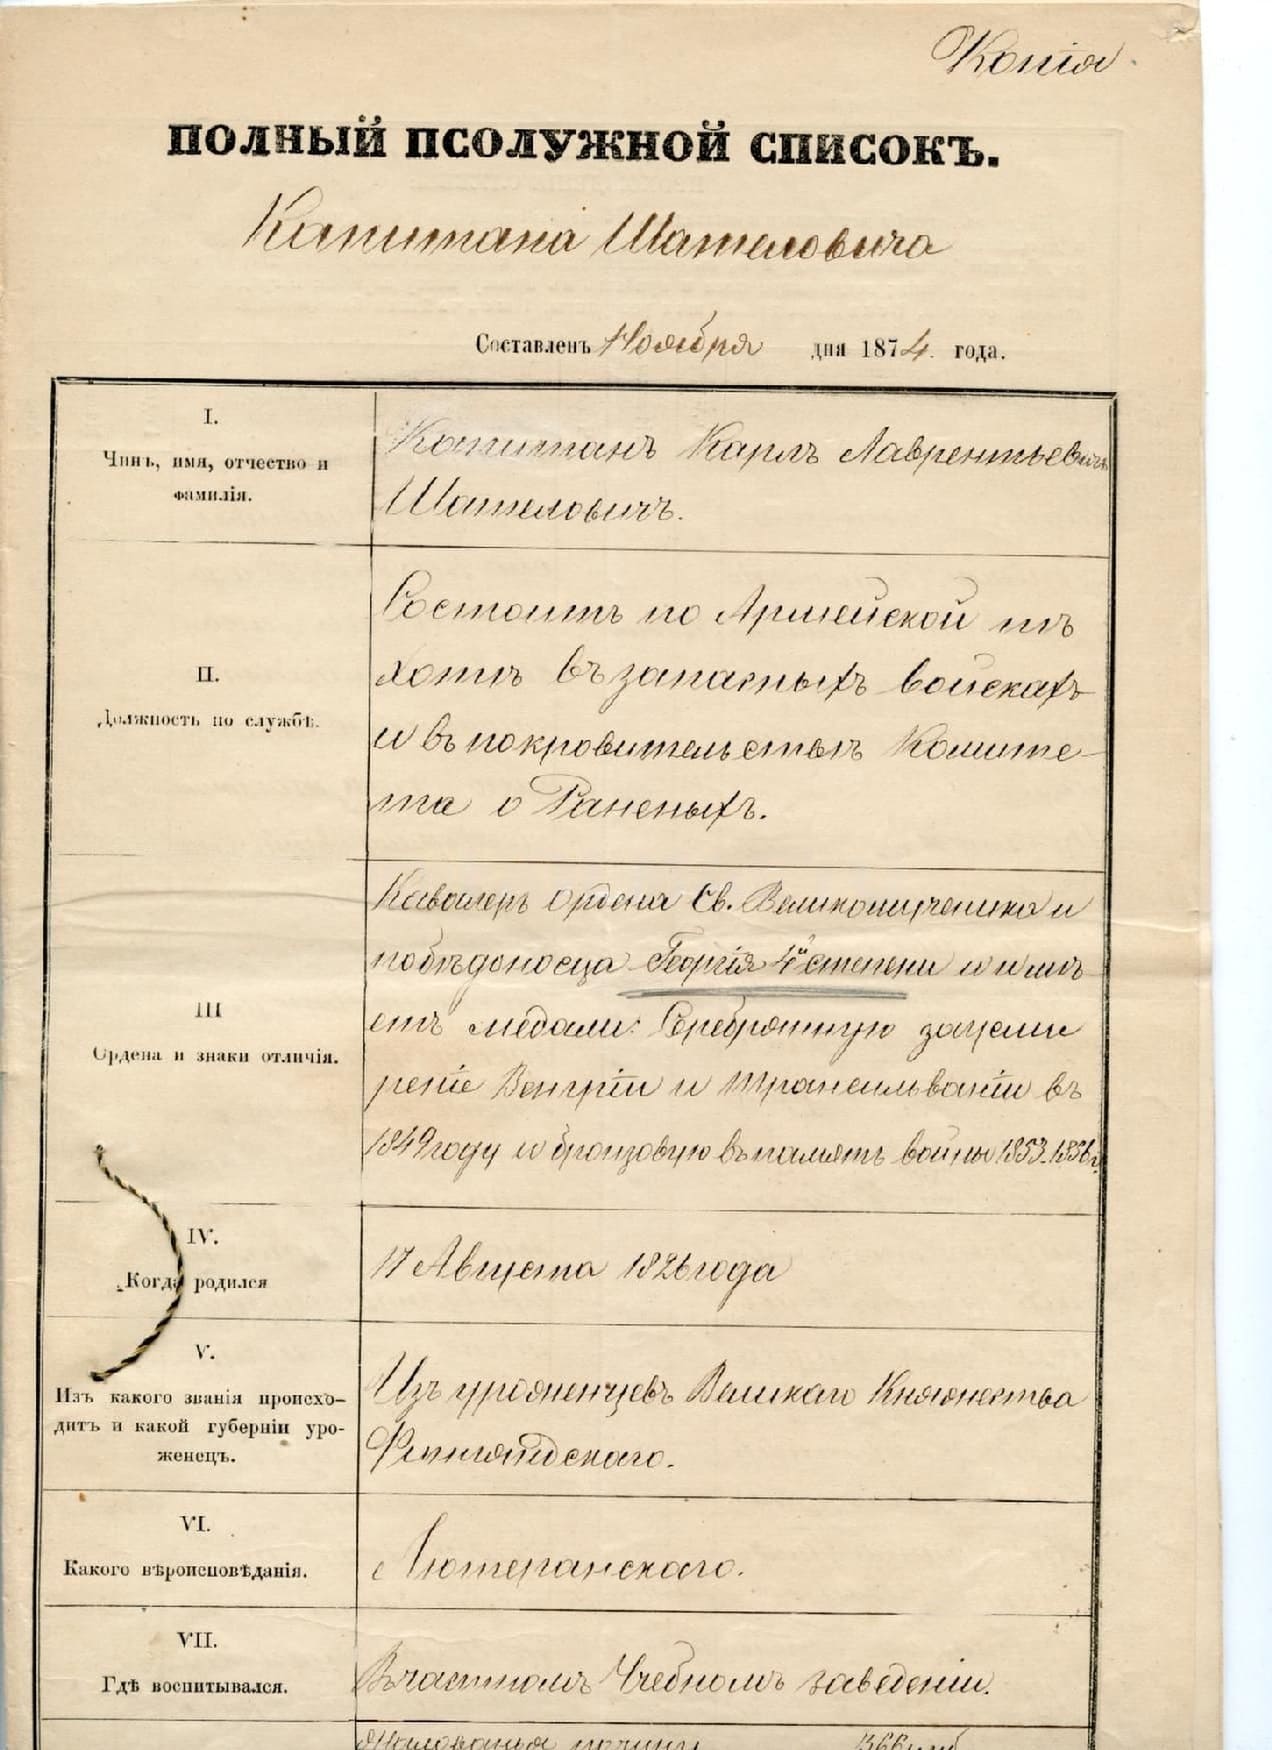 Копія
ПОЛНЫЙ ПСОЛУЖНОЙ СПИСОКЪ.
Капитана Шателовича
Составленъ Ноября дня 1874. года.
I.
Чинъ, имя, отчество и
фамилія.
Капитанъ Карлъ Лаврентьевичъ
Шателовичъ.
II.
Должность по службѣ.
Состоитъ по Армейской пѣ
хотѣ въ запасныхъ войскахъ
и въ покровительствѣ Комите-
та о Раненыхъ.
III
Ордена и знаки отличія.
Кавалеръ ордена Св. Великомученика и
побѣдоносца Георгія 4й степени и имѣ-
етъ медали: Серебрянную за усми
реніе Венгріи и Трансильваніи въ
1849 году и бронзовую въ память войны 1853-1856 г.
IV.
Когда родился
17 Августа 1826 года
V.
Изъ какого званія происхо-
дитъ и какой губерніи уро-
женецъ.
Изъ уроженцевъ Великаго Княжества
Финляндскаго.
VI.
Какого вѣроисповѣданія.
Лютеранскаго.
VII.
Гдѣ воспитывался.
Въ частномъ Учебномъ заведеніи.